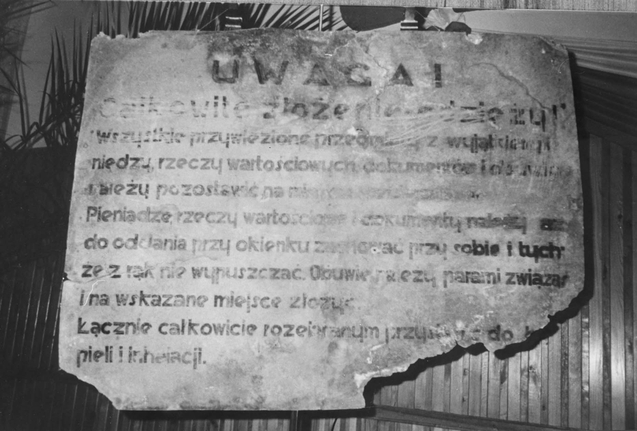 UWAGA!
Całkowite złożenie odzieży!
Wszystkie przywiezione przedmioty z wyjątkiem
niedzy, rzeczy wartościowych, dokumentów i
należy pozostawić na
Pieniądze rzeczy wartościowe i dokumenty należy
do oddania przy okienku zachować przy sobie i tych
ze z rąk nie wypuszczać. Obuwie należy parami związać
i na wskazane miejsce złożyć.
Łącznie całkowicie rozebranym do
pieli i inhelacji.